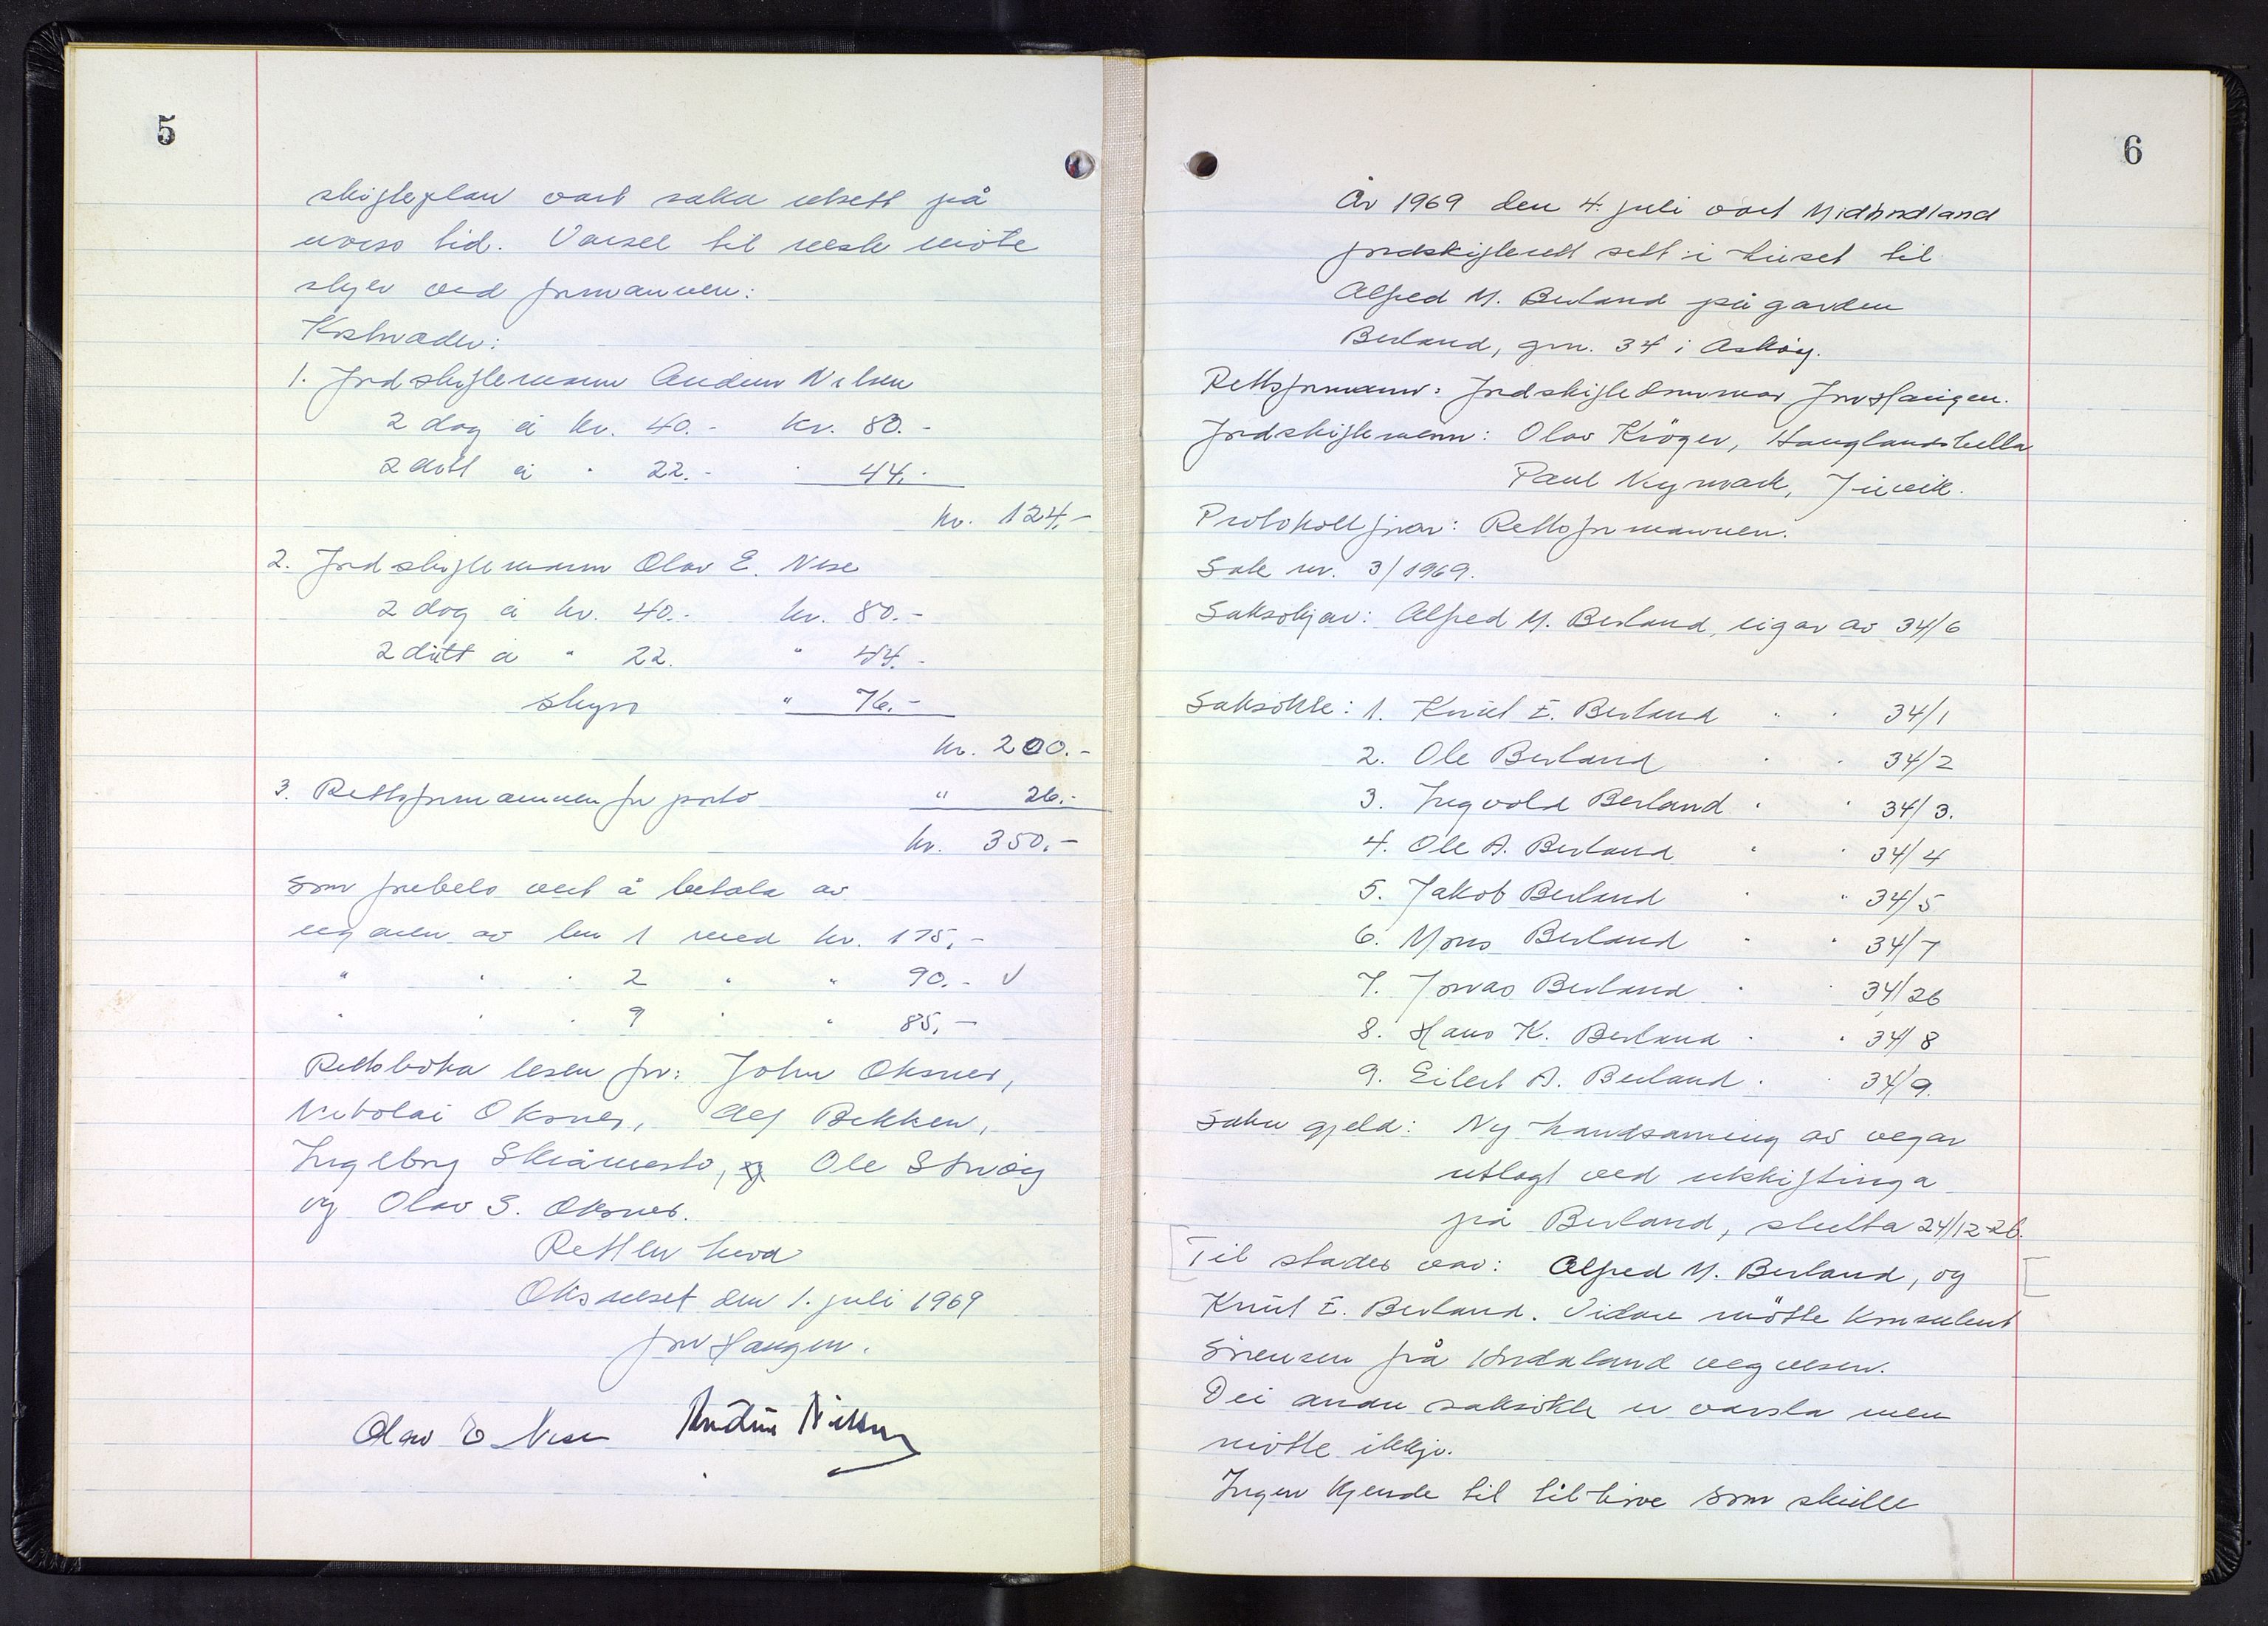 5
skifteplan vart saka utsett på
uviss tid. Varsel til neste møte
skjer ved formannen:
Kostnader:
1. Jordskiftemann Andreas Nilsen
2 dag á kr. 40.- kr. 80.-
2 diett á " 22.- " 44.-
kr. 124.-
2. Jordskiftemann Olav E. Nese
2 dag á kr. 40.- kr. 80.-
2 diett á " 22. " 44.-
skyss " 76.-
kr. 200.-
3. Rettsformannen for porto " 26.-
kr. 350.-
som førebels vert å betala av
eigaren av bnr 1 med kr. 175,-
" " " 2 " " 90.- V
" " " 9 " " 85,-
Rettsboka lesen for: John Oksnes,
Nikolai Oksnes, Alf Bekken,
Ingeborg Skråmestø, Ole Storøy
og Olav S. Oksnes.
Retten heva
Oksneset den 1. juli 1969
Jon Haugen.
Olav E Nese
6
År 1969 den 4. juli vart Midhordland
jordskifterett sett i huset til
Alfred M. Berland på garden
Berland, gnr. 34 i Askøy.
Rettsformann: Jordskiftedommar Jon Haugen.
Jordskiftemenn: Olav Krøger, Hauglandshella
Paul Nymark, Juvik.
Protokollførar: Rettsformannen.
Sak nr. 3/1969.
Saksøkjar: Alfred M. Berland, eigar av 34/6
Saksøkte: 1. Knut E. Berland " " 34/1
2. Ole Berland " " 34/2
3. Ingvald Berland " " 34/3.
4. Ole A. Berland " " 34/4
5. Jakob Berland " " 34/5
6. Mons Berland " " 34/7
7. Jonas Berland " " 34/26
8. Hans K. Berland " " 34/8
9. Eilert A. Berland " " 34/9.
Saka gjeld: Ny handsaming av vegar
utlagt ved utskiftinga
på Berland, slutta 24/12-26.
Til stades var: Alfred M. Berland, og
Knut E. Berland. Vidare møtte konsulent
Sørensen frå Hordaland vegvesen.
Dei andre saksøkte er varsla men
møtte ikkje.
Ingen kjende til tilhøve som skulle